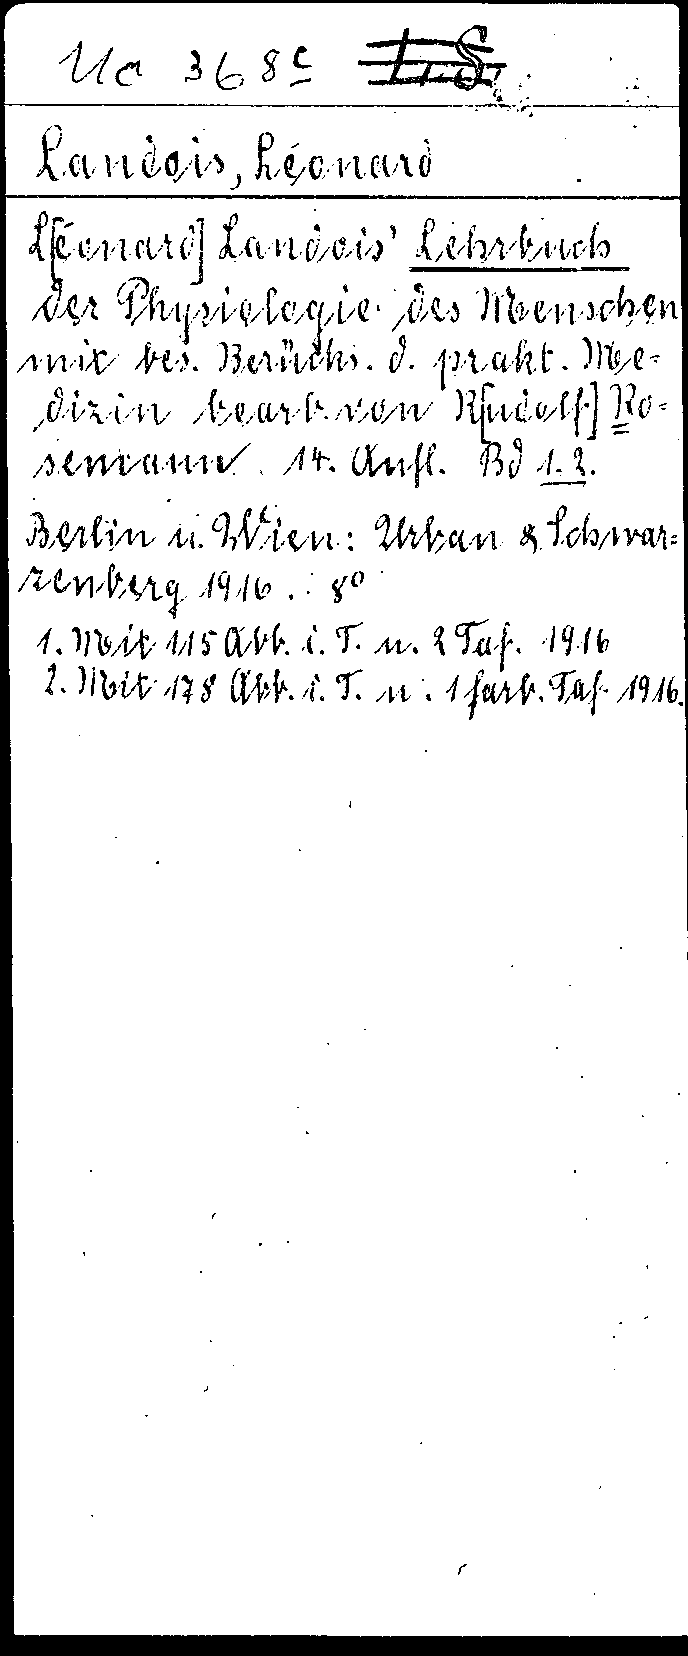 Ua 368c
Landois, Léonard
L[éonard] Landois' Lehrbuch
der Physiologie des Menschen
mit bes. Berücks. d. prakt. Me=
dizin bearb. von R[udolf] Ro=
semann. 14. Aufl. Bd 1. 2.
Berlin u. Wien: Urban & Schwar=
zenberg 1916. 8°
1. Mit 115 Abb. i. T. u. 2 Taf. 1916
2. Mit 178 Abb. i. T. u. 1 farb. Taf. 1916.